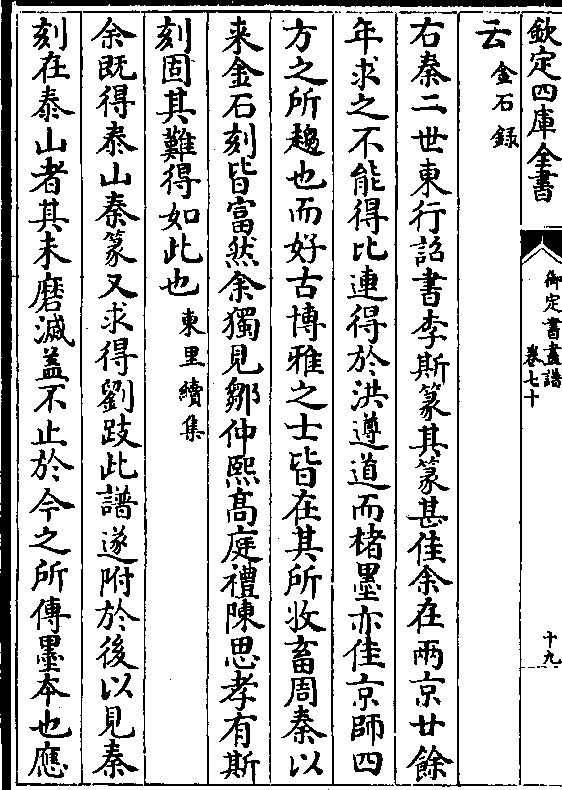 欽定四庫全書
御定書畫譜
卷七十
十九
云 金石錄
右秦二世東行詔書李斯篆其篆甚佳余在兩京廿餘
年求之不能得比連得於洪遵道而楮墨亦佳京師四
方之所趨也而好古博雅之士皆在其所收畜周秦以
来金石刻皆富然余獨見鄒仲熙高庭禮陳思孝有斯
刻固其難得如此也 東里續集
余既得泰山秦篆又求得劉跂此譜遂附於後以見秦
刻在泰山者其未磨滅蓋不止於今之所傳墨本也應